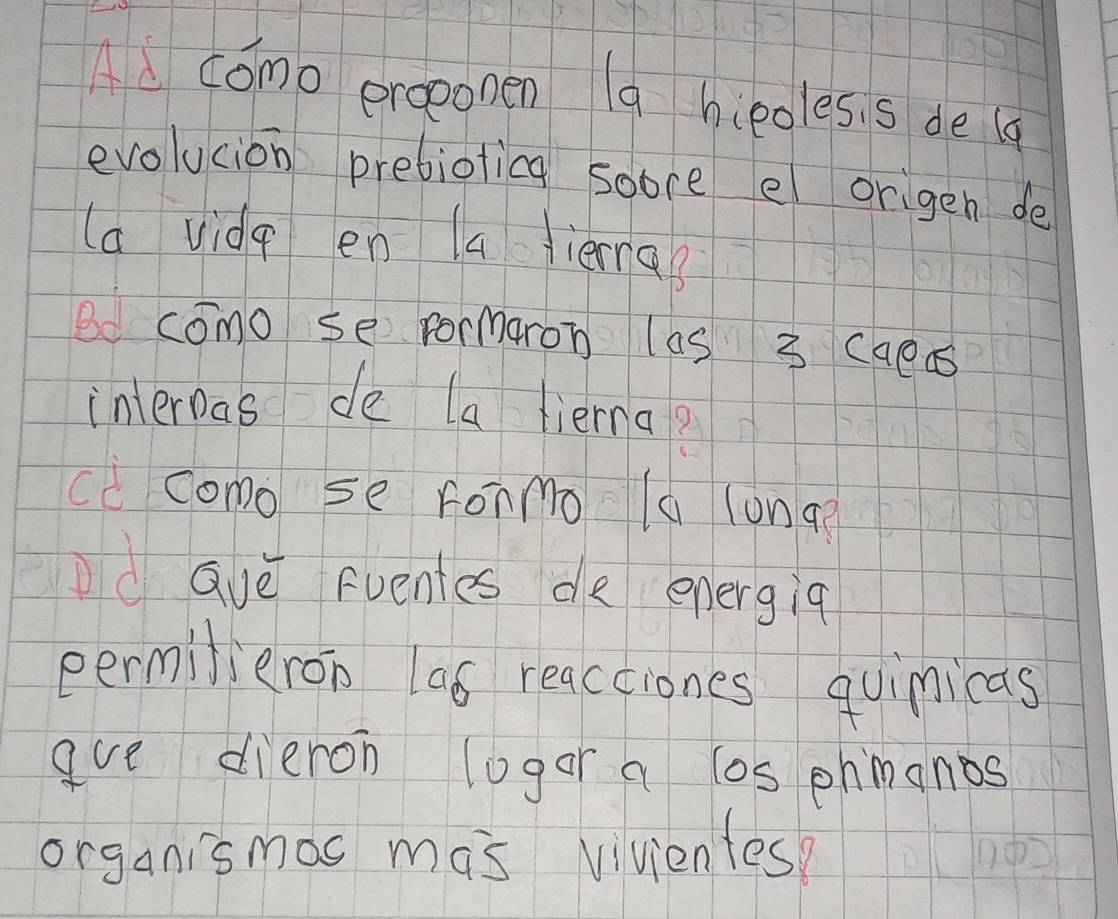 A¿ cómo proponen la hipotesis de la
evolución prebiotica sobre el origen de
la vida en la tierra?
B¿ cómo se formaron las 3 capas
internas de la tierra?
C¿ como se formo la luna?
D¿ Qué fuentes de energia
permitieron las reacciones quimicas
que dieron lugar a los primarios
organismos más vivientes?